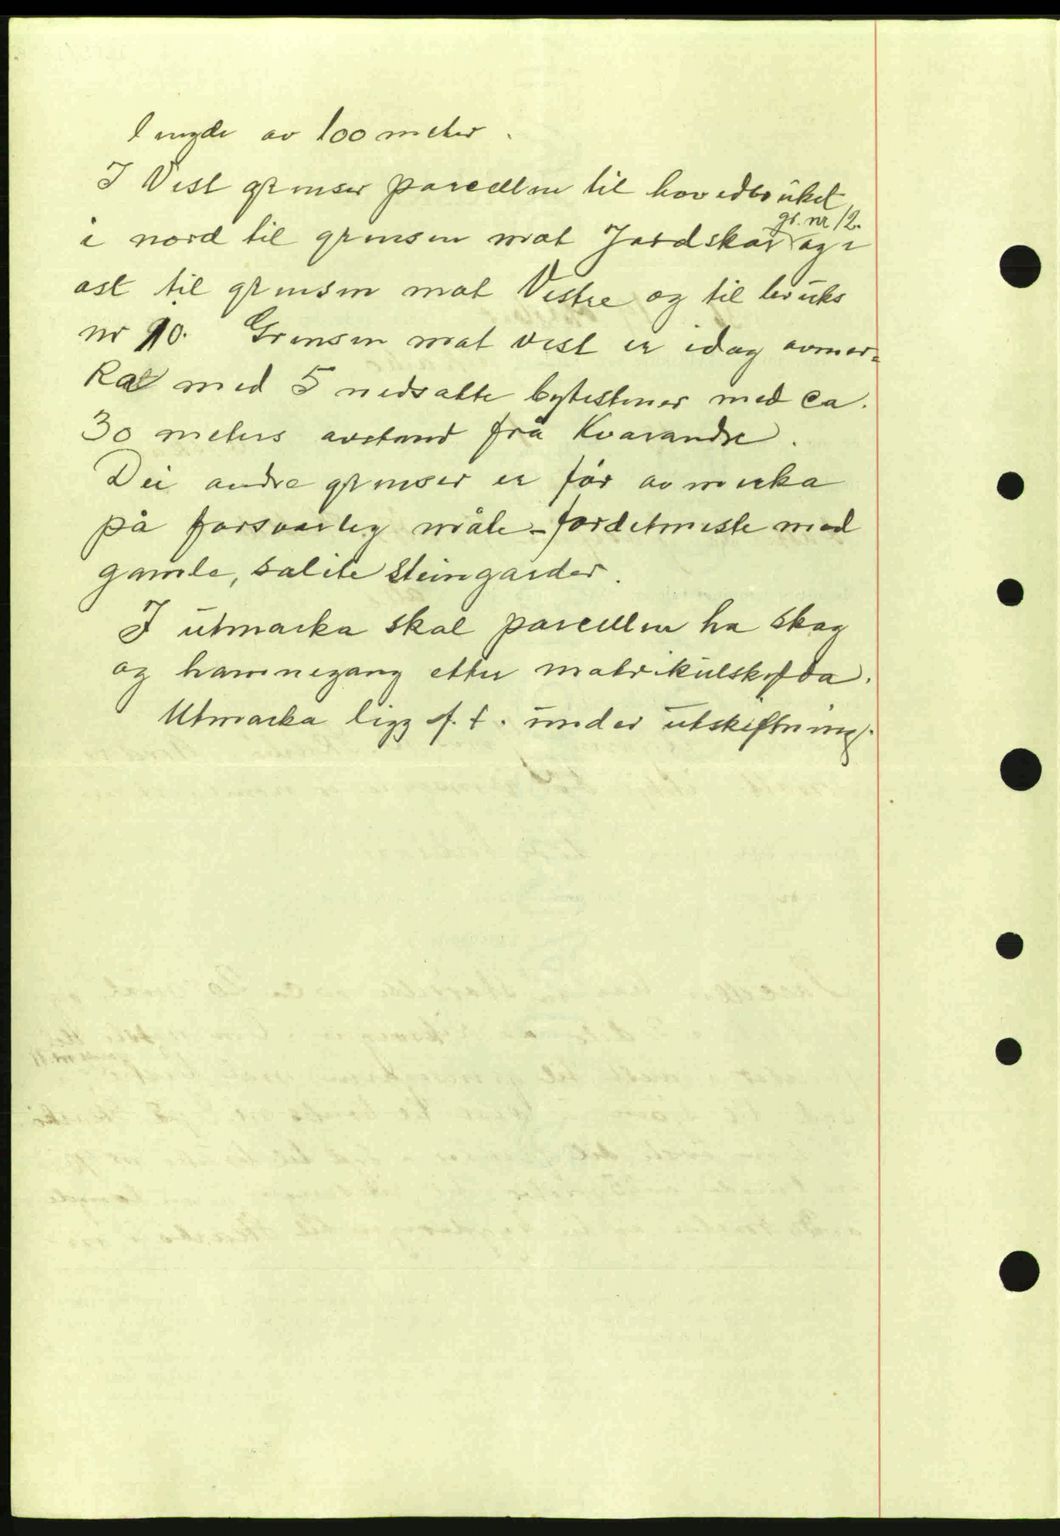 lengde av 100 meter.
I Vest grenser parcellen til hovedbruket,
i nord til grensen mot Jordskar gr. nr 12. og i
ost til grensen mot Vestre og til bruks
nr 10. Grensen mot vest er idag avmer-
ket med 5 nedsatte bytestener med ca.
30 meters avstand frå kvarandre.
Dei andre grenser er før avmerka
på forsvarleg måte - fordetmeste med
gamle, solite steingarder.
I utmarka skal parcellen ha skog
og hamnegang etter matrikulskylda.
Utmarka ligg f. t. under utskiftning.